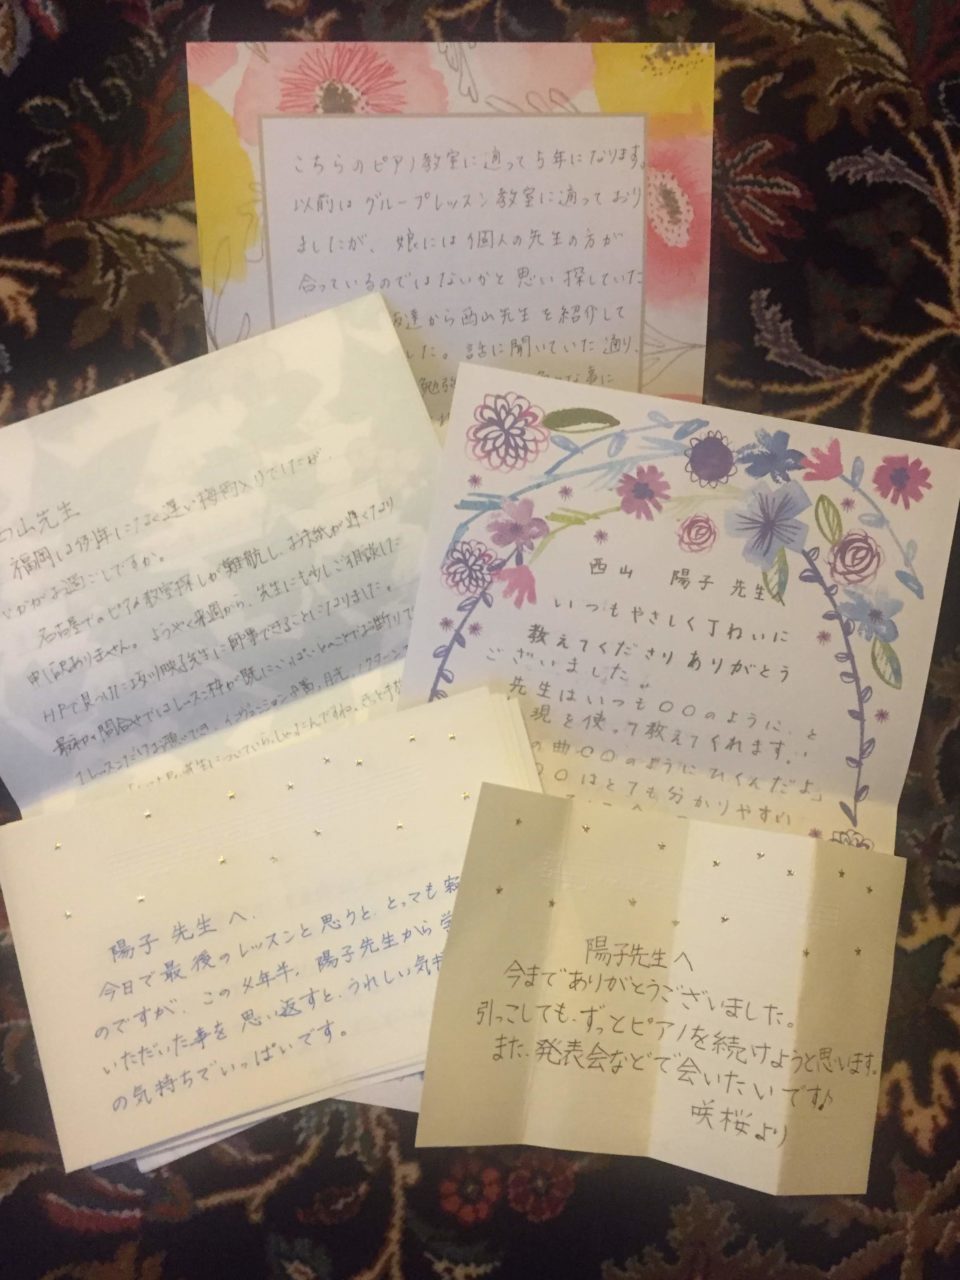 こちらのピアノ教室に通って5年になります。
以前はグループレッスン教室に通っており
ましたが、娘には個人の先生の方が
合っているのではないかと思い探していた
達から西山先生を紹介して
した。話に聞いていた通り、
勉強
事に
西山先生
福岡は例年になく遅い梅雨入りでしたが、
いかがお過ごしですか。
名古屋でのピアノ教室探しが難航し、お手紙が遅くなり
申し訳ありません。ようやく来週から、先生にも少しご相談した
HPで見つけた
先生に師事できることになりました。
最初の問合せではレッスン枠が既にいっぱいとのことでお断り
西山 陽子 先生へ
いつもやさしくていねいに
教えてくださりありがとう
ございました。
先生はいつも〇〇のように、と
現を使って教えてくれます。
の曲〇〇のようにひくんだよ」
〇〇はとても分かりやすい
陽子 先生へ.
今日で最後のレッスンと思うと、とっても
のですが、この4年半、陽子先生から
いただいた事を思い返すと、うれしい気
の気持ちでいっぱいです。
陽子先生へ
今までありがとうございました。
引っこしても、ずっとピアノを続けようと思います。
また、発表会などで会いたいです♪
咲桜より